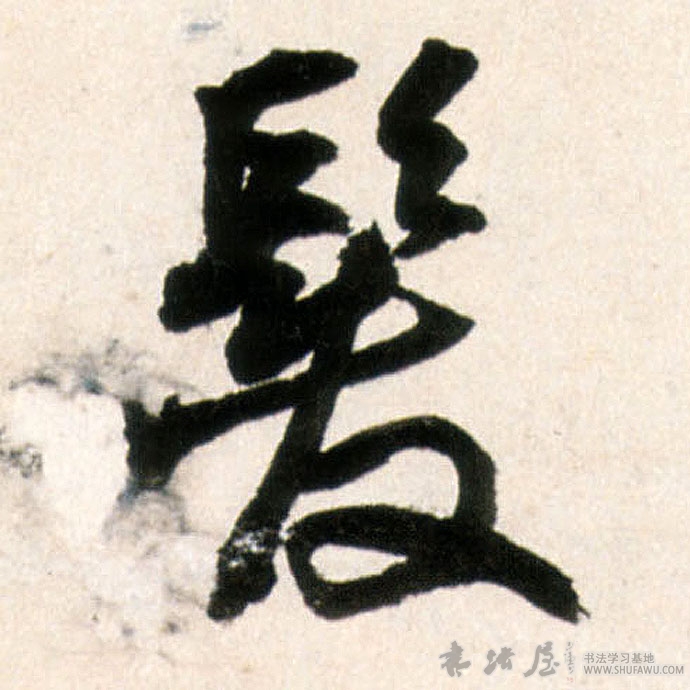 髮
书法屋
书法学习基地
WWW.SHUFAWU.COM